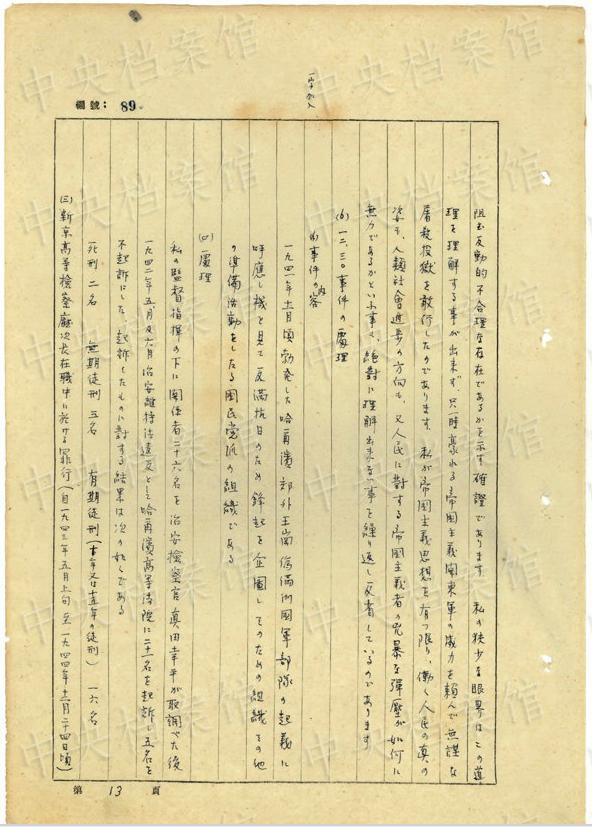 中央档案馆
欄號: 89
一字加入
阻む反動的不合理な存在であるかを示す確證であります 私の狭少な眼界はこの道
理を理解する事が出来ず、只一時暴れる帝国主義関東軍の威力を頼んで無謹な
屠殺投獄を敢行したのであります 私が帝国主義思想を有つ限り、働く人民の真の
姿も、人類社會進歩の方向も、又人民に對する帝国主義者の兇暴な弾壓が如何に
無力であるかといふ事も、絶對に理解出来ない事を繰り返し反省しているのであります
(6) 一二.三〇事件の處理
(イ) 事件の内容
一九四一年十二月頃勃発した哈爾濱郊外王崗偽満洲国軍部隊の起義に
呼應し機を見て反満抗日のため鋒起を企圖し そのための組織その他
の準備活動をしたる國民党系の組織である
(ロ) 處理
私の監督指揮の下に関係者二十六名を治安檢察官真田幸平が取調べた後
一九四二年五月及六月治安維持法違反として哈爾濱高等法院に二十一名を起訴し五名を
不起訴にした 起訴したものに對する結果は次の如くである
死刑 二名 無期徒刑 三名 有期徒刑(十年又は十五年の徒刑) 一六名
(三) 新京高等檢察廳次長在職中に於ける罪行(自一九四三年五月上旬至一九四四年十二月二十四日頃)
第 13 頁